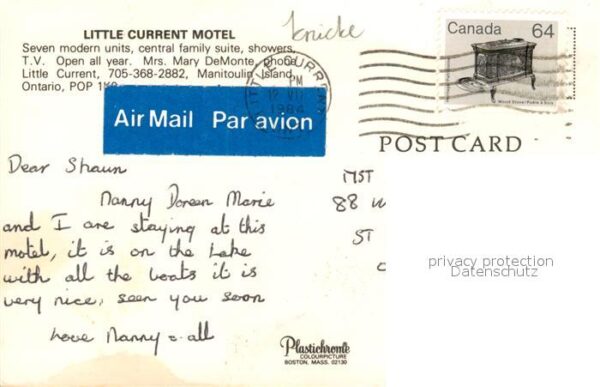 LITTLE CURRENT MOTEL
Seven modern units, central family suite, showers,
T.V. Open all year. Mrs. Mary DeMonte, Phone
Little Current, 705-368-2882, Manitoulin Island,
Ontario, POP 1K0
knicke
Canada 64
LITTLE CURRENT
PM
1984
Air Mail Par avion
POST CARD
Dear Shaun
Nanny Doreen Marie
and I are staying at this
motel, it is on the Lake
with all the boats it is
very nice, seen you soon
Love Nanny & all
MST
88 W
ST
privacy protection
Datenschutz
Plastichrome
COLOURPICTURE
BOSTON, MASS. 02130